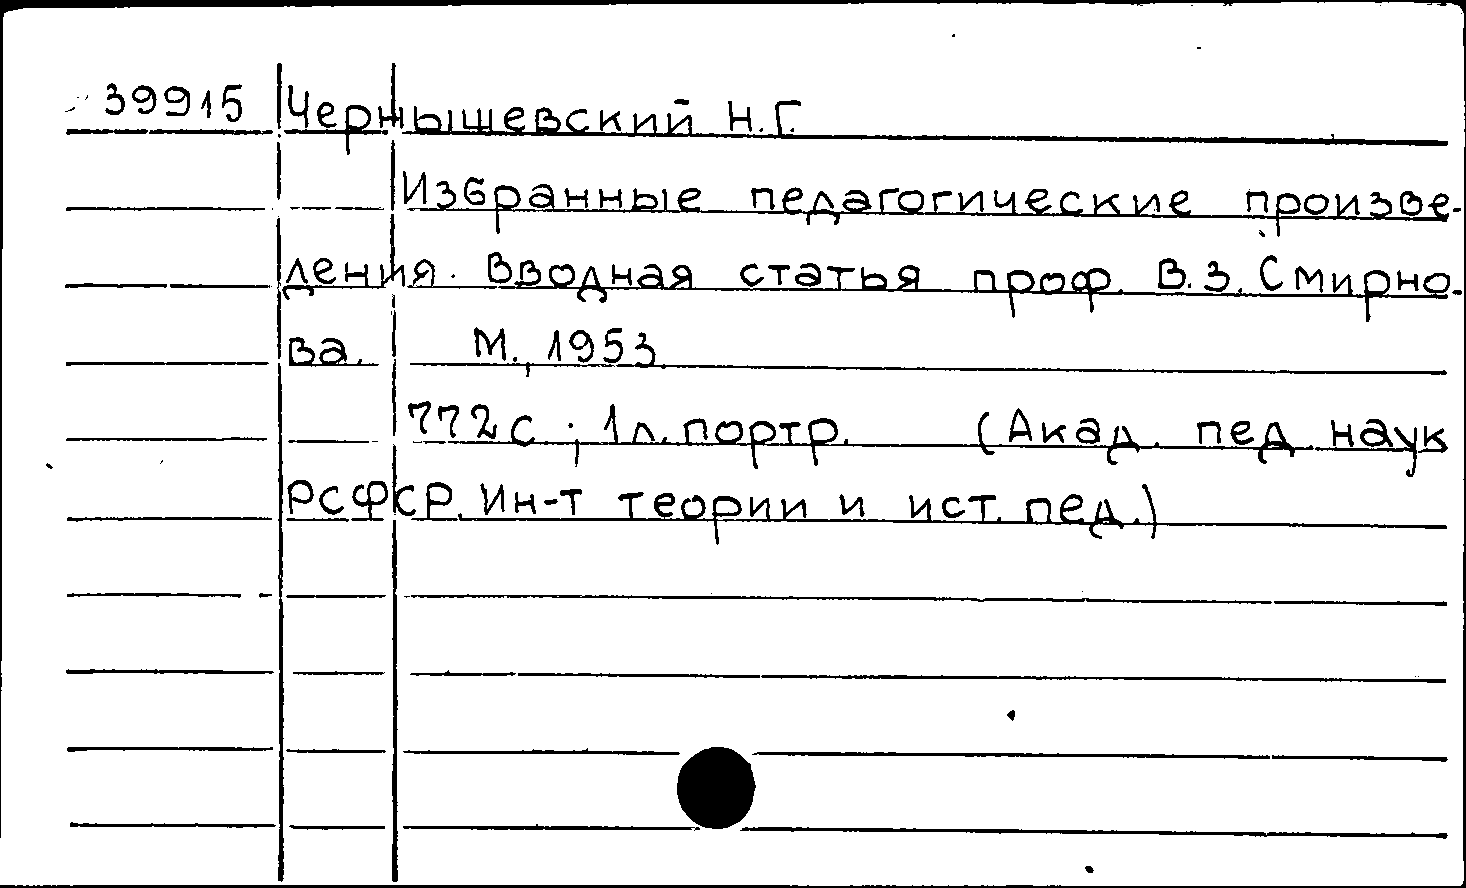 39915 Чернышевский Н.Г.
Избранные педагогические произве-
дения. Вводная статья проф. В.З. Смирно-
ва. М., 1953.
772с.; 1л. портр. (Акад. пед. наук
РСФСР. Ин-т теории и ист. пед.)